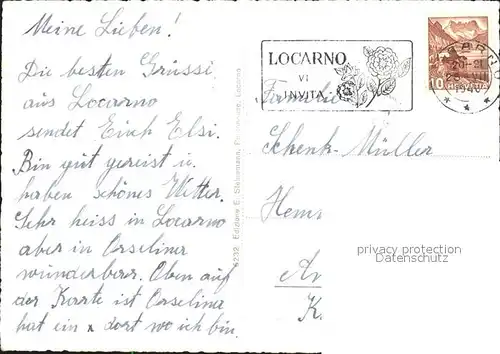 Meine Lieben!
Die besten Grüssi
aus Locarno
sendet Euch Elsi.
Bin gut gereist u.
haben schönes Wetter.
Sehr heiss in Locarno
aber in Orselina
wunderbar. Oben auf
der Karte ist Orselina
hat ein x dort wo ich bin.
6232 Edizione E. Locarno
LOCARNO
VI
INVITA
10
1940
Familie
Schenk-Müller
privacy protection
Datenschutz